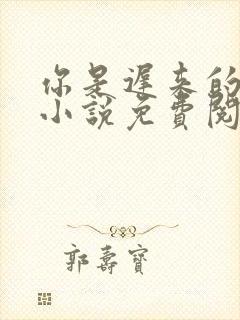 你是遲来的
小說免費閱
郭壽寶